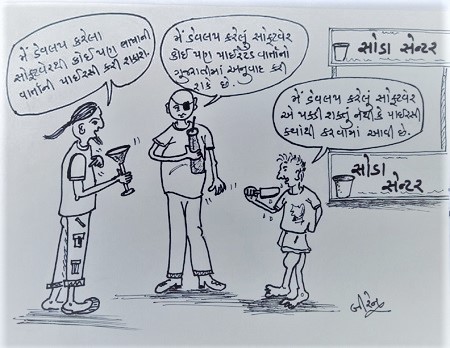 મેં ડેવલપ કરેલા
સોફ્ટવેરથી કોઈ પણ ભાષાની
વાર્તાની પાઈરસી કરી શકાશે.
મેં ડેવલપ કરેલું સોફ્ટવેર
કોઈ પણ પાઈરેટેડ વાર્તાનો
ગુજરાતીમાં અનુવાદ કરી
શકે છે.
મેં ડેવલપ કરેલું સોફ્ટવેર
એ પકડી શકતું નથી કે પાઈરસી
ક્યાંથી કરવામાં આવી છે.
સોડા સેન્ટર
સોડા
સેન્ટર